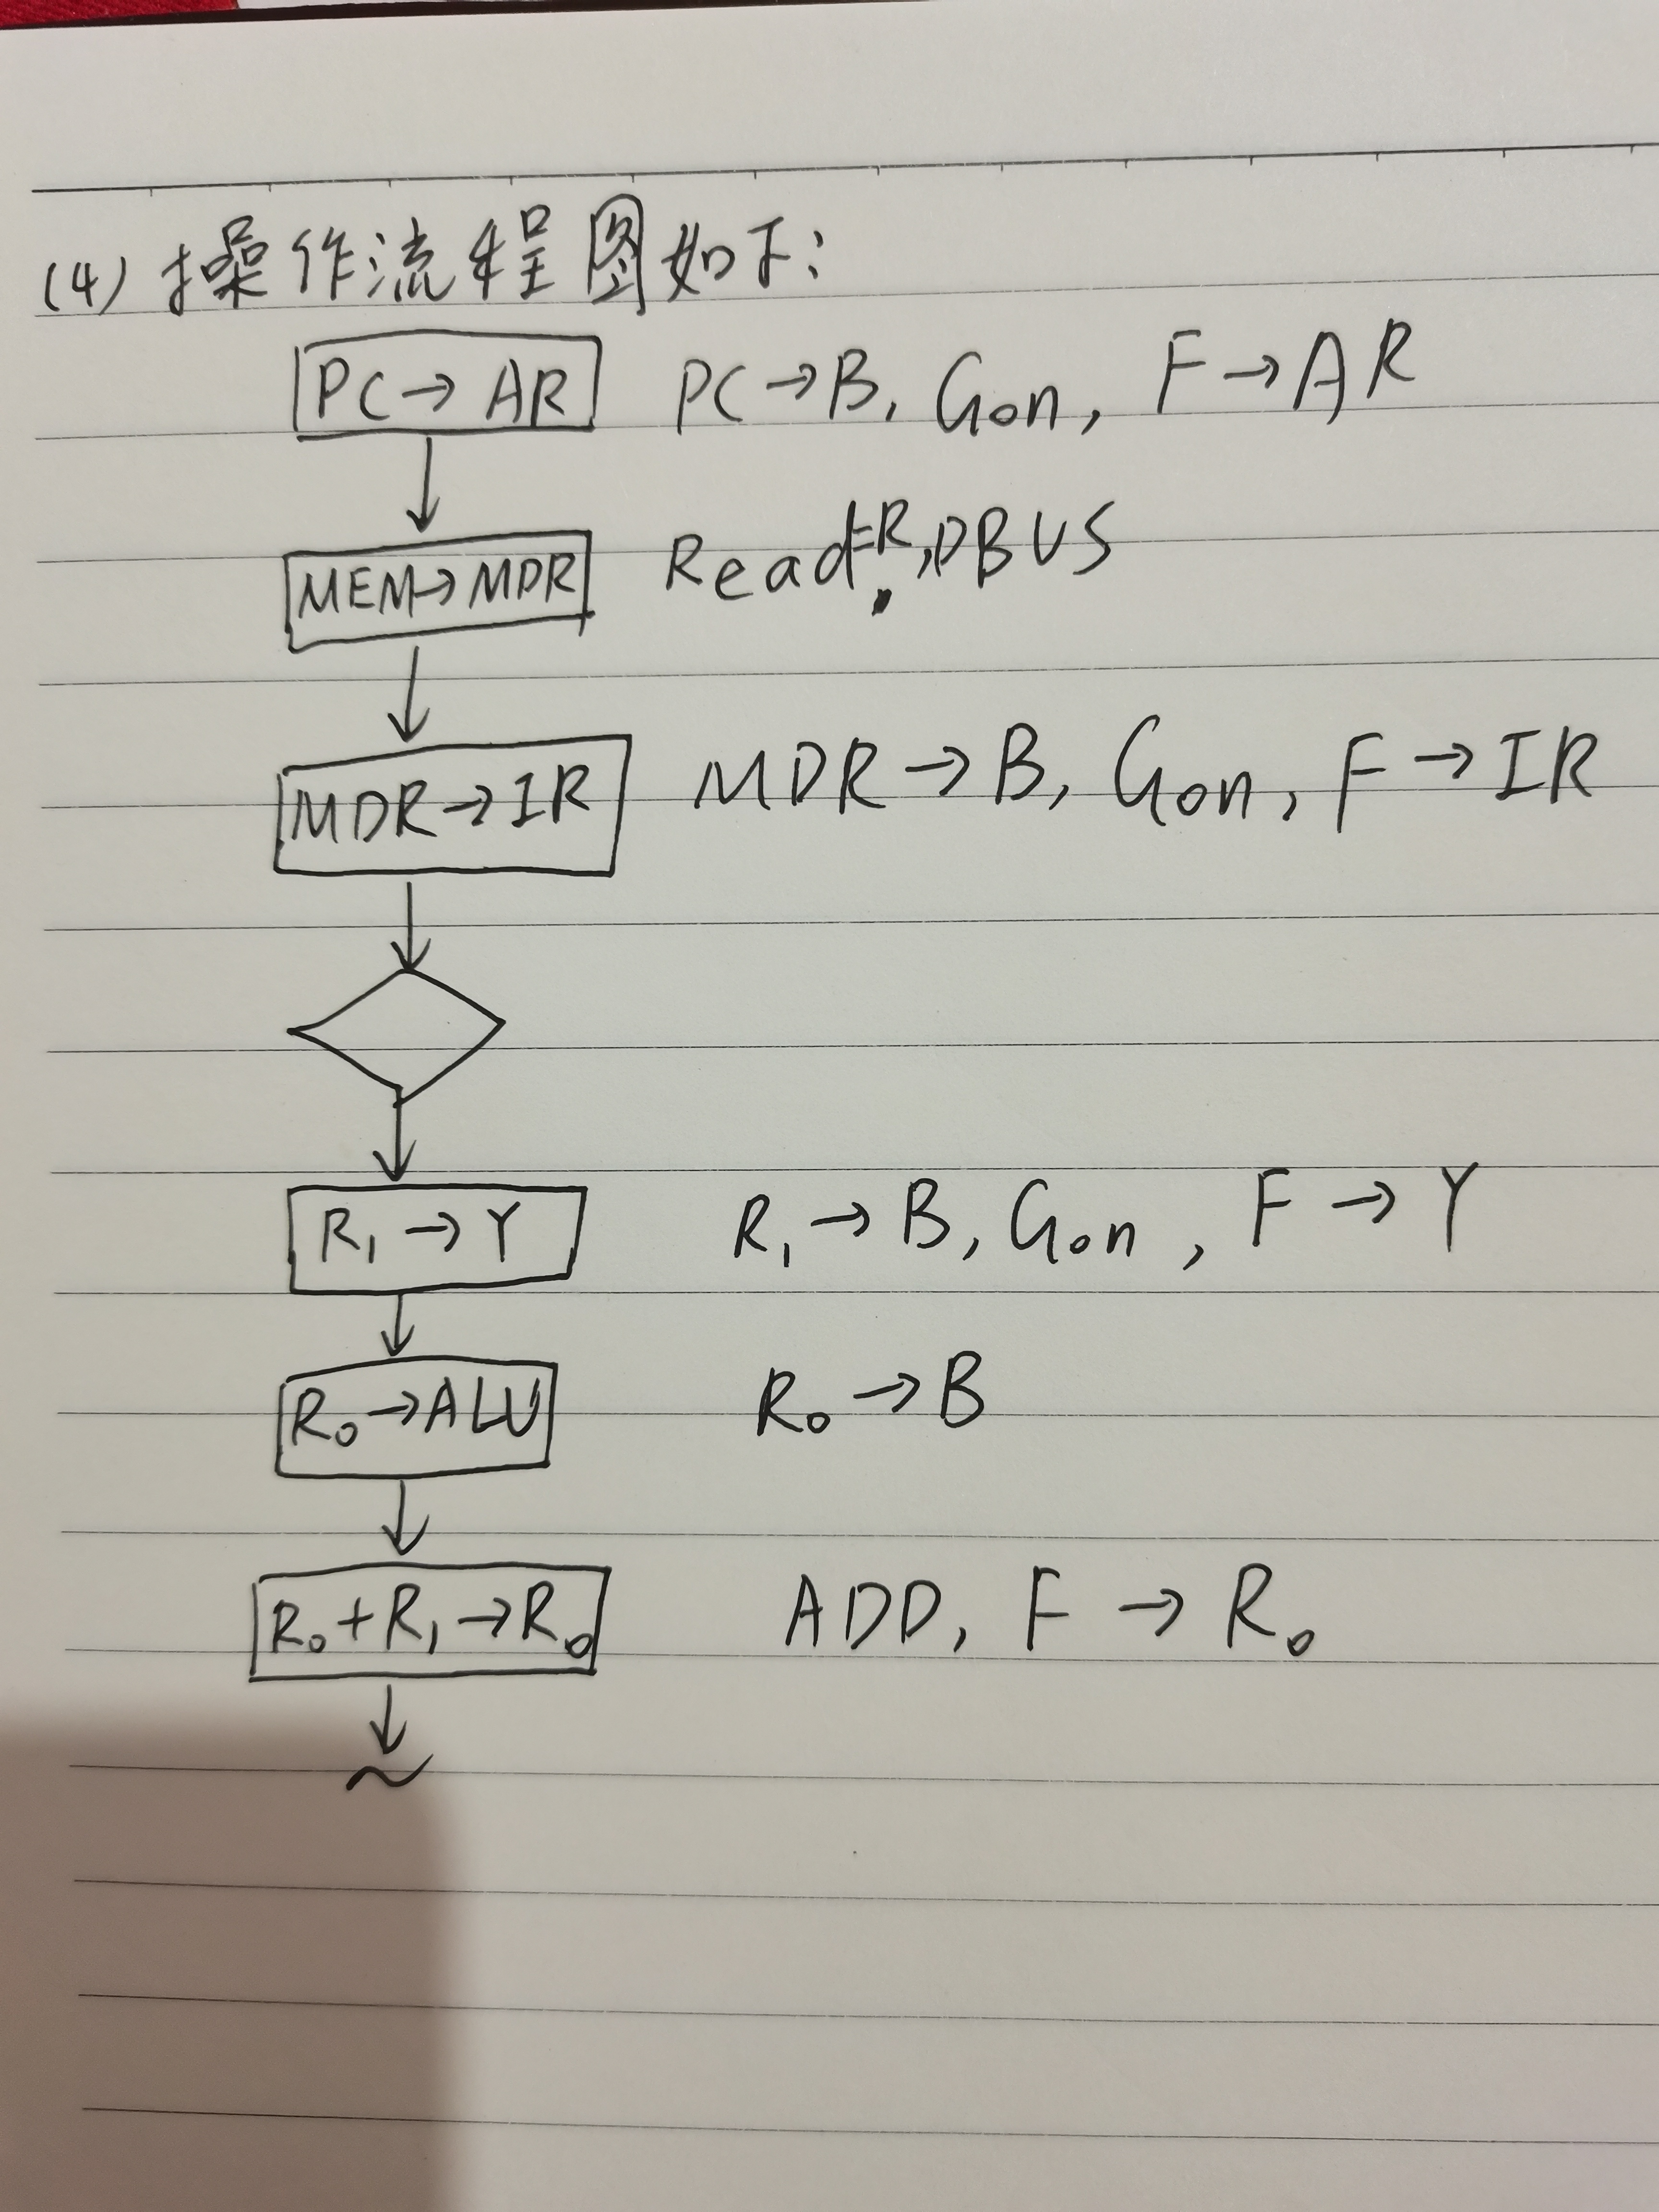 (4) 操作流程图如下:
PC→AR PC→B, Gon, F→AR
MEM→MDR Read, DBUS
MDR→IR MDR→B, Gon, F→IR
R₁→Y R₁→B, Gon, F→Y
R₀→ALU R₀→B
R₀+R₁→R₀ ADD, F→R₀
~